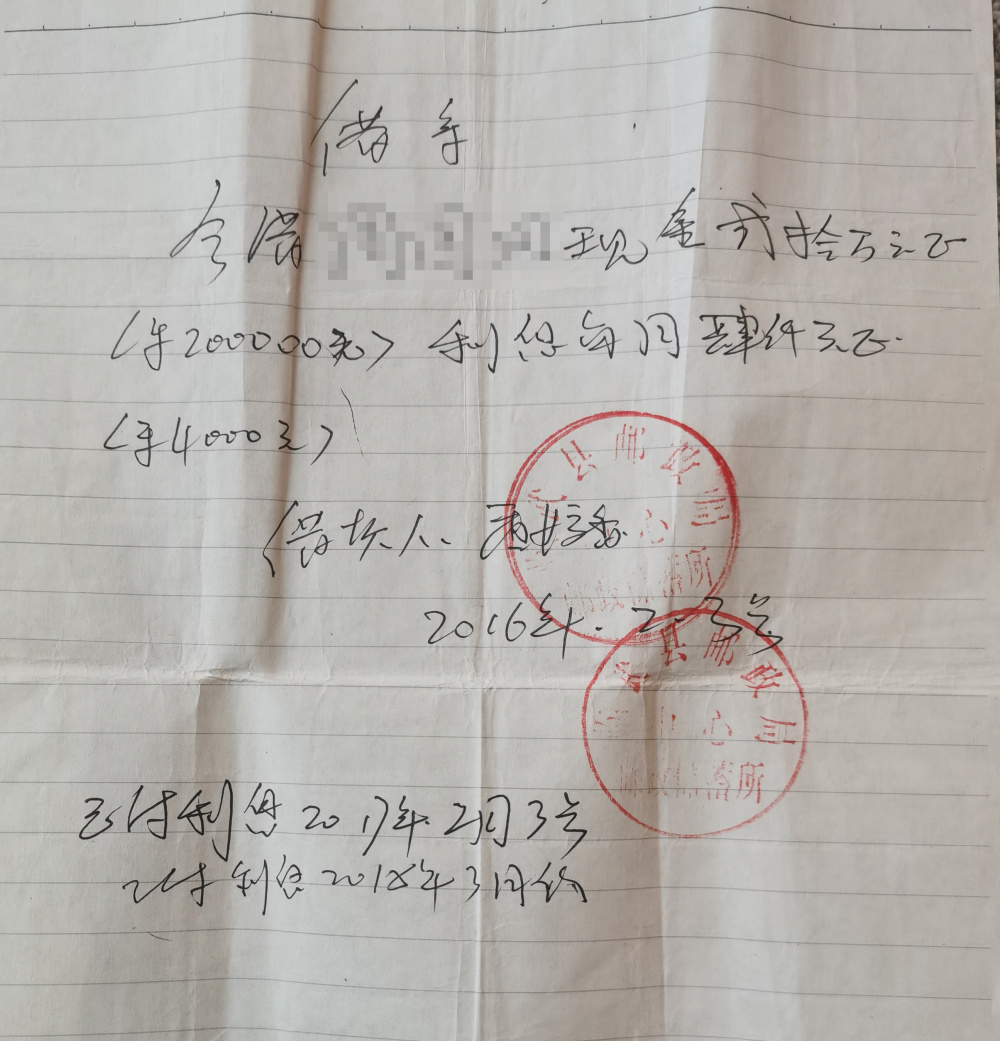 借字
今借 现金弍拾万元正
(¥200000元) 利息每月肆仟元正.
(¥4000元)
借款人、
2016年.2.3号
县邮政局
心
邮政储蓄所
县邮政局
中心
邮政储蓄所
已付利息2017年2月3号
已付利息2018年3月份